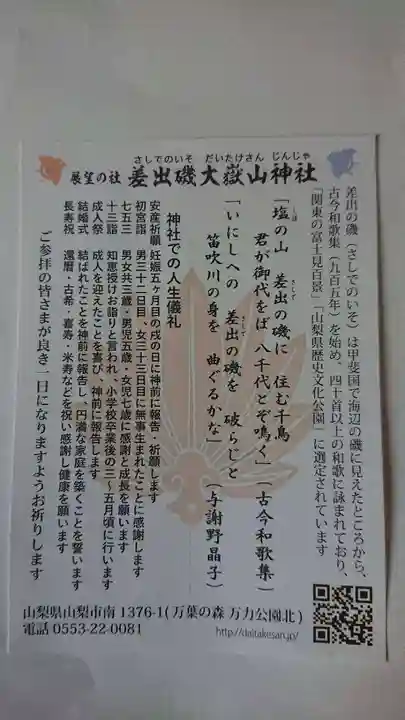 さしでのいそ だいたけさん じんじゃ
展望の社 差出磯大嶽山神社
差出の磯(さしでのいそ)は甲斐国で海辺の磯に見えたところから、
古今和歌集(九百五年)を始め、四十首以上の和歌に詠まれており、
「関東の富士見百景」「山梨県歴史文化公園」に選定されています
「塩の山 差出の磯に 住む千鳥
君が御代をば 八千代とぞ鳴く」(古今和歌集)
「いにしへの 差出の磯を 破らじと
笛吹川の身を 曲ぐるかな」(与謝野晶子)
神社での人生儀礼
安産祈願 妊娠五ヶ月目の戌の日に神前に報告・祈願します
初宮詣 男三十二日目、女三十三日目に無事生まれたことに感謝します
七五三 男女共三歳・男児五歳・女児七歳に感謝と成長を願います
十三詣 知恵授けお詣りと言われ、小学校卒業後の三〜五月頃に行います
成人祭 成人を迎えたことを喜び、神前に報告します
結婚式 結ばれたことを神前に報告し、円満な家庭を築くことを誓います
長寿祝 還暦・古希・喜寿・米寿などを祝い感謝し健康を願います
ご参拝の皆さまが良き一日になりますようお祈りします
山梨県山梨市南1376-1(万葉の森 万力公園北)
電話 0553-22-0081
http://daitakesan.jp/